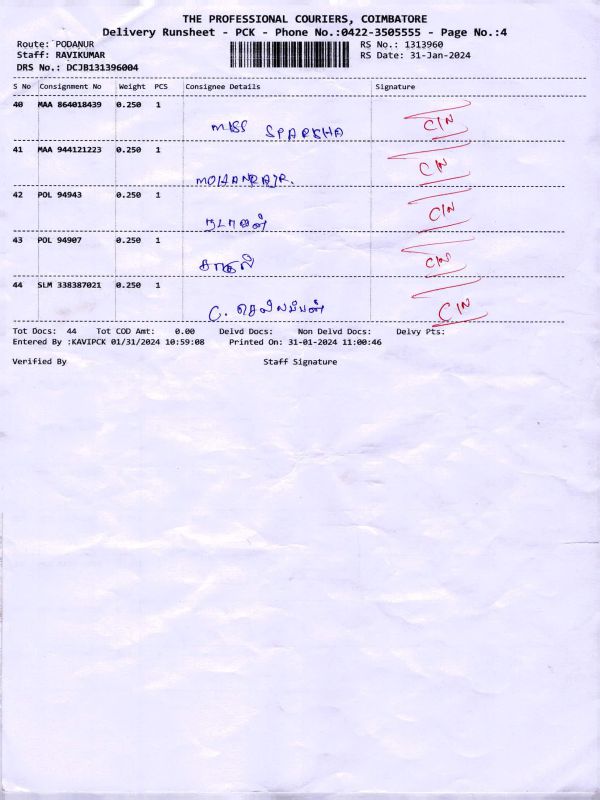 THE PROFESSIONAL COURIERS, COIMBATORE
Delivery Runsheet - PCK - Phone No.:0422-3505555 - Page No.:4
Route: PODANUR RS No.: 1313960
Staff: RAVIKUMAR RS Date: 31-Jan-2024
DRS No.: DCJB131396004
S No Consignment No Weight PCS Consignee Details Signature
40 MAA 864018439 0.250 1
MISS SPARSHA C/N
41 MAA 944121223 0.250 1
MOHANRAJ R. C/N
42 POL 94943 0.250 1
நடராஜன் C/N
43 POL 94907 0.250 1
C/N
44 SLM 338387021 0.250 1
C. C/N
Tot Docs: 44 Tot COD Amt: 0.00 Delvd Docs: Non Delvd Docs: Delvy Pts:
Entered By :KAVIPCK 01/31/2024 10:59:08 Printed On: 31-01-2024 11:00:46
Verified By Staff Signature